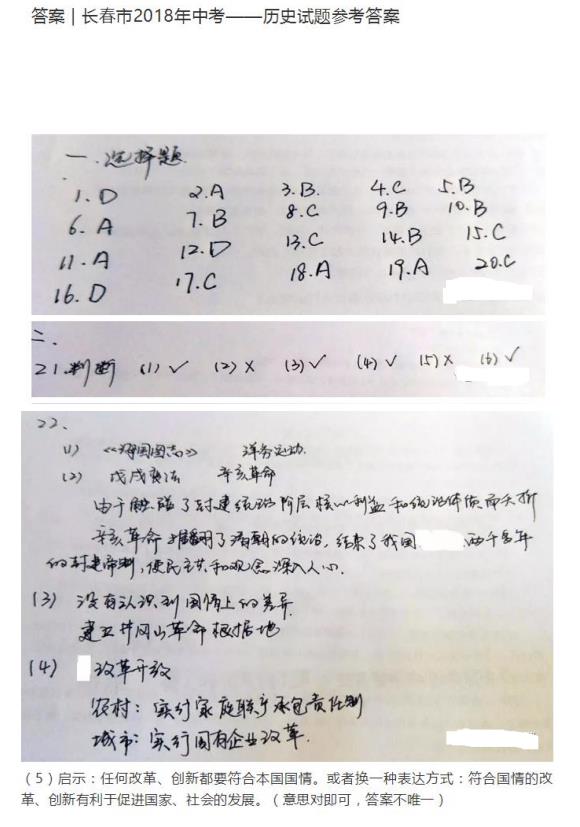 答案 | 长春市2018年中考——历史试题参考答案
一.选择题
1.D 2.A 3.B. 4.C 5.B
6.A 7.B 8.C 9.B 10.B
11.A 12.D 13.C 14.B 15.C
16.D 17.C 18.A 19.A 20.C
二.
21.判断 (1)√ (2)× (3)√ (4)√ (5)× (6)√
22、
(1) 《海国图志》 洋务运动.
(2) 戊戌变法 辛亥革命
由于触碰了封建统治阶层核心利益和统治体质而夭折
辛亥革命推翻了清朝的统治,结束了我国 两千多年
的封建帝制,使民主共和观念深入人心.
(3) 没有认识到国情上的差异
建立井冈山革命根据地
(4) 改革开放
农村:实行家庭联产承包责任制
城市:实行国有企业改革.
(5)启示:任何改革、创新都要符合本国国情。或者换一种表达方式:符合国情的改
革、创新有利于促进国家、社会的发展。(意思对即可,答案不唯一)